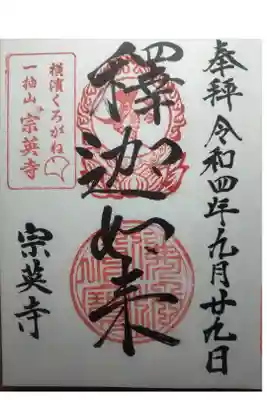 奉拝 令和四年九月廿九日
釋迦如来
横濱くろがね
一拍山 宗英寺
宗英寺